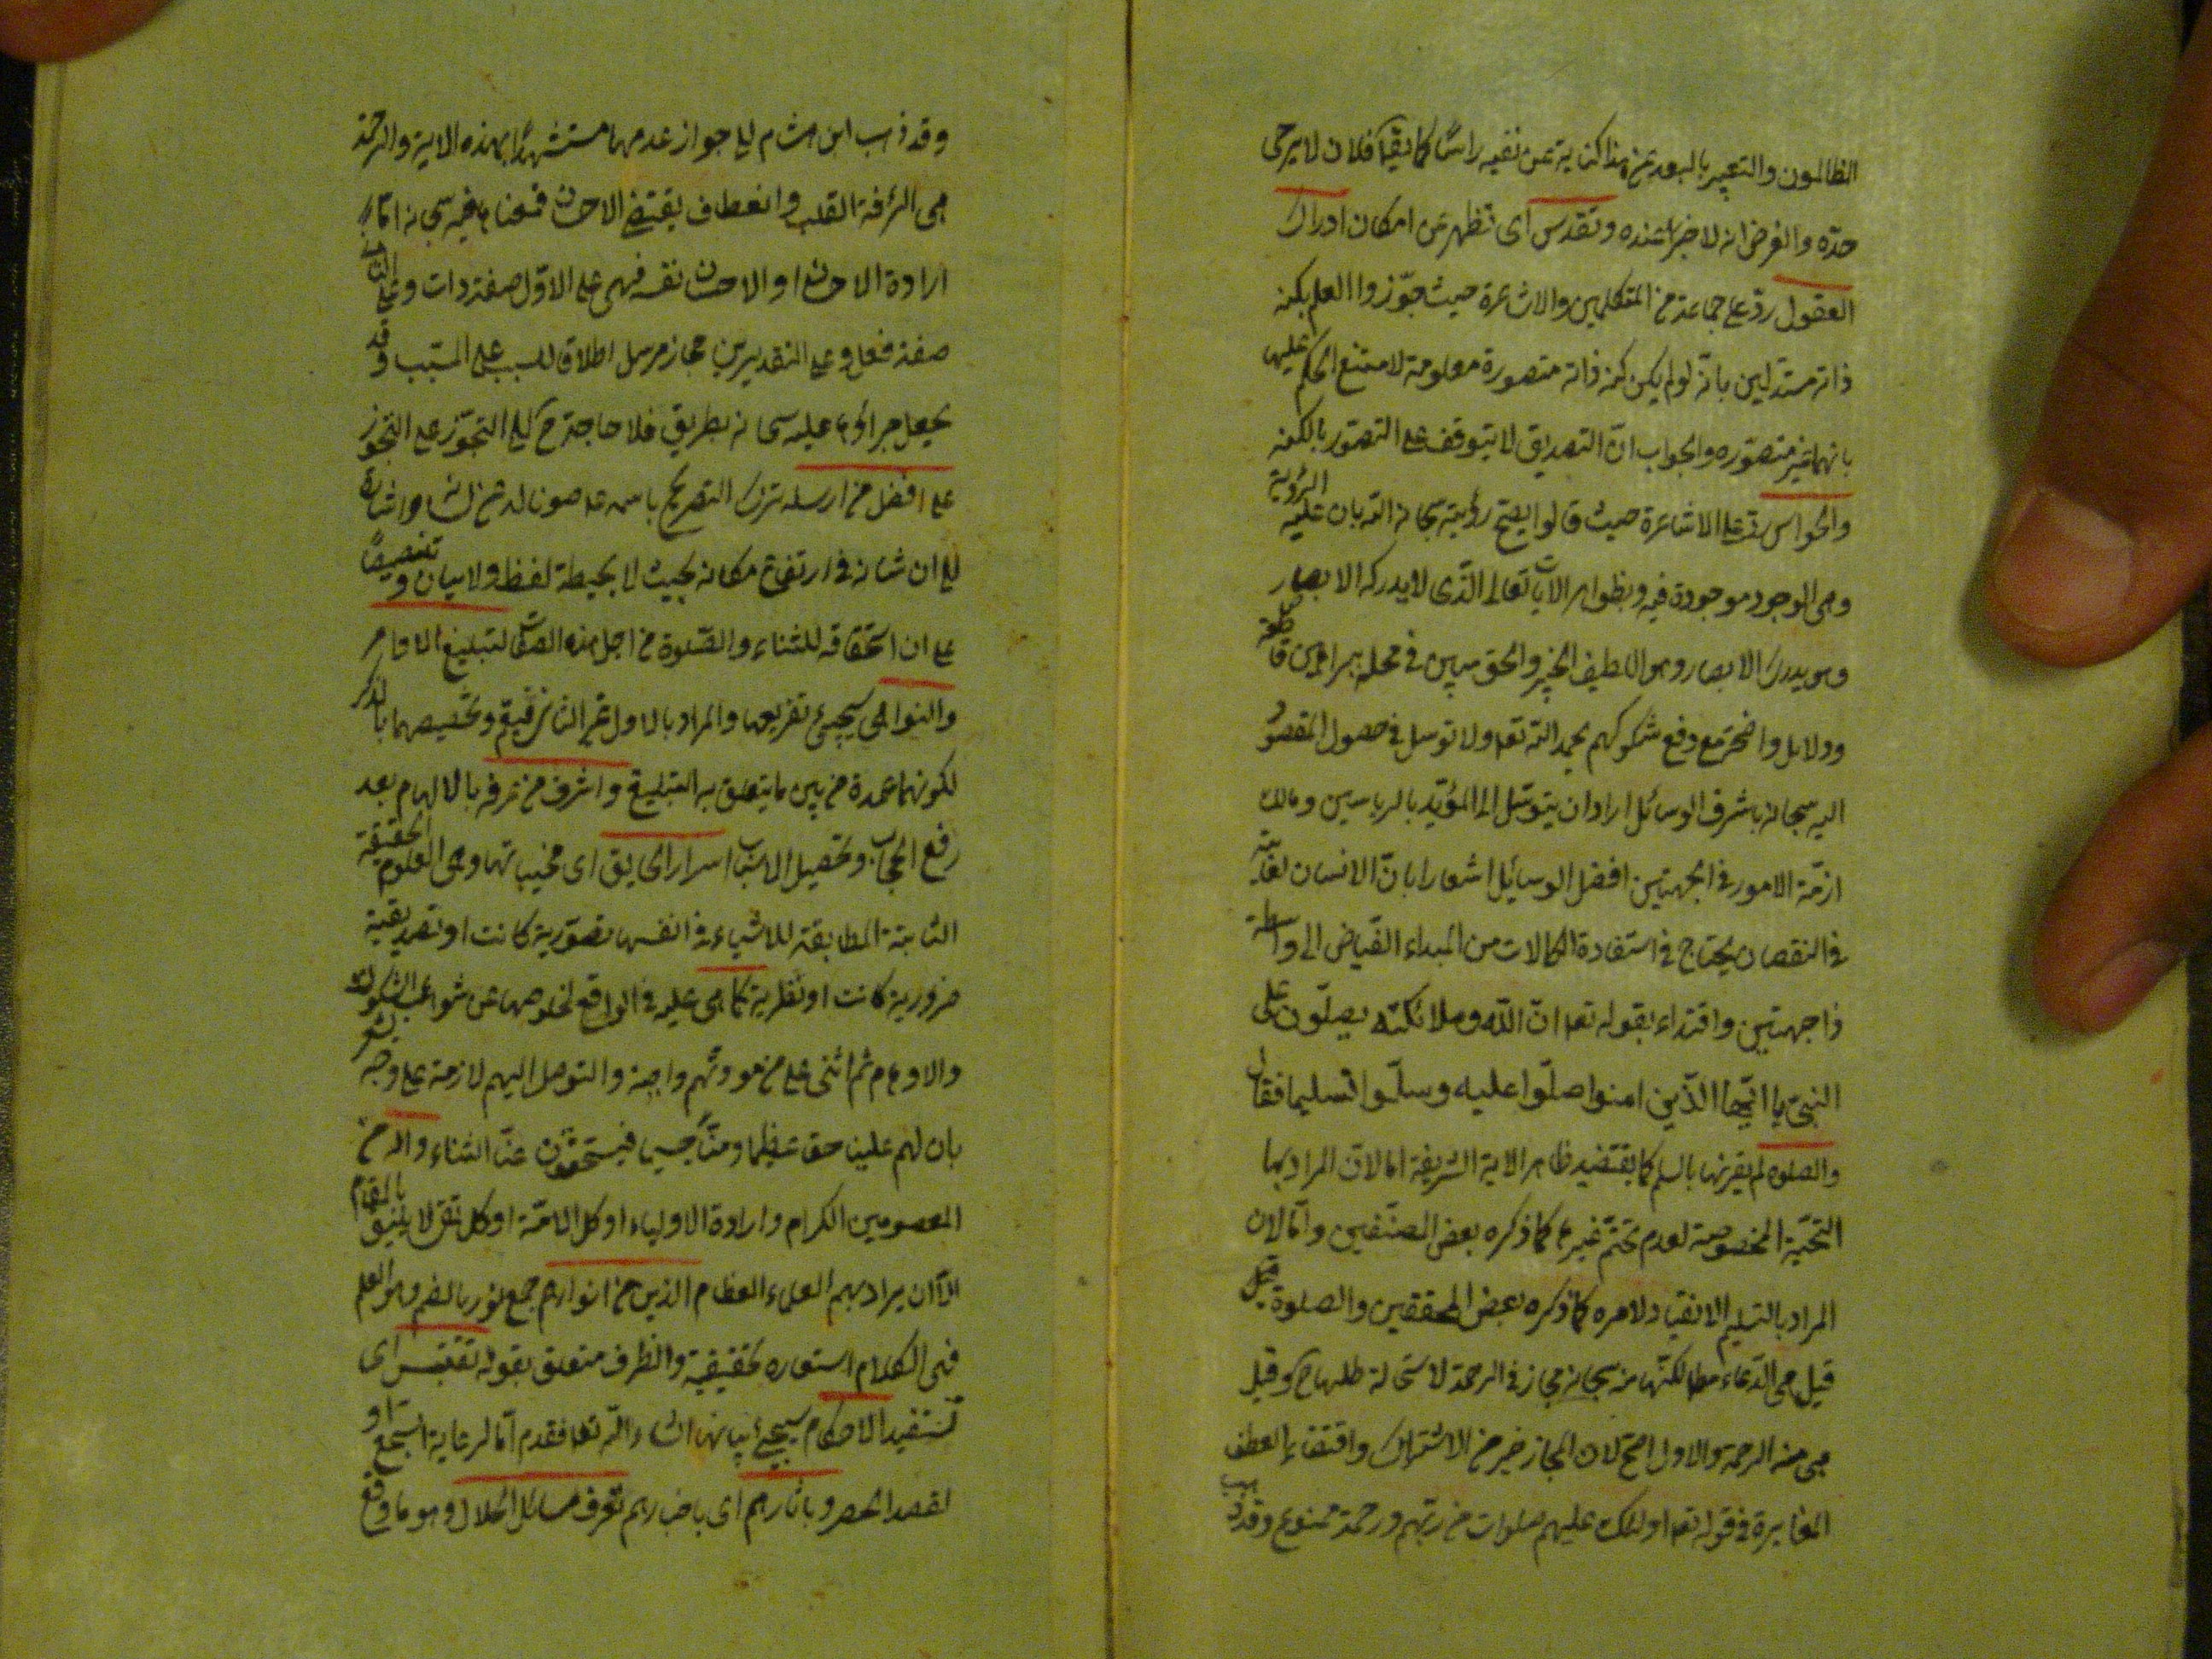 الظالمون والتعبير بالبعد عن هذا كناية عن نفيه راسًا كما يقال فلان لا يرجى
حده والغرض انه لا خيرا عنده وتقدس اى تطهر عن امكان ادراك
العقول ردّ على جماعة من المتكلمين والاشاعرة حيث جوّزوا العلم بكنه
ذاته مستدلين بانّه لو لم يكن كنه ذاته متصورة معلومة لامتنع الحكم عليها
بانها غير متصوره والجواب انّ التصديق لا يتوقف على التصور بالكنه
والحواس ردّ على الاشاعرة حيث قالوا يصح رؤيته سبحانه بان علّة الرؤية
وهى الوجود موجودة فيه وبظواهر الايات تعالى الّذى لا يدركه الابصار
وهو يدرك الابصار وهو اللطيف الخبير والحق مبين فى محله ببراهين قاطعة
ودلايل واضحة مع دفع شكوكهم بحمد الله تعا ولا توسل فى حصول المقصود
اليه سبحانه باشرف الوسائل اراد ان يتوسّل الى المؤيّد بالرياستين ومالك
ازمّة الامور فى الجهتين افضل الوسايل اشعارا بانّ الانسان لغايته
فى النقصان يحتاج فى استفادة الكمالات من المبداء الفيّاض الى واسطة
ذا جهتين واقتداء بقوله تعا انّ الله وملائكته يصلّون على
النبىّ يا ايّها الّذين امنوا صلّوا عليه وسلّموا تسليما فقال
والصلوه لم يقرنها بالسلم كما يقتضيه ظاهر الاية الشريفة اما لانّ المراد بها
التحيّة المخصوصة لعدم تحتّم غيرها كما ذكره بعض المصنّفين وامّا لان
المراد بالتسليم الانقياد لامره كما ذكره بعض المحققين والصلوة قيل
قيل هى الدّعاء مطا لكنّها منه سبحانه مجاز فى الرحمة لاستحالة طلبها ح وقيل
هى منه الرحمة والاول اصح لان المجاز خير من الاشتراك واقتضاء العطف
المغايرة فى قوله تعا اولئك عليهم صلوات من ربّهم ورحمة ممنوع وقد ذهب
وقد ذهب ابن هشام الى جواز عدمها مستشهدًا بهذه الاية والرحمة
هى الرّافة القلب وانعطاف يقتضى الاحسان فمعناها فيه سبحانه امّا
ارادة الاحسان او الاحسان نفسه فهى على الاوّل صفة ذات وعلى الثانى
صفة فعل وعلى التقديرين مجاز مرسل اطلاق للسبب على المسبّب وقد
يجعل عليه سبحانه بطريق فلا حاجة ح الى التجوّز على التجوز
على افضل من ارسله ترك التصريح باسمه صونا له عن واشارة
الى ان شانه فى ارتفاع مكانه بحيث لا يحيطه لفظ ولا بيان وتنصيصًا
على ان استحقاقه للثناء والصّلوة من اجل هذه الصفات لتبليغ الاوامر
والنواهى سيجئ تفريعها والمراد بالاول غير الثانى وتخصيصهما بالذكر
لكونهما عمدة من بين ما يتعلق به التبليغ واشرف من عرفه بالالهام بعد
رفع الحجاب وتحصيل الاسباب اسرار الحقايق اى مخيباتها وهى العلوم الحقيقية
الثابتة المطابقة للاشياء فى انفسها تصوّرية كانت او تصديقية
ضرورية كانت او نظرية كما هى عليه فى الواقع لخلوصها عن شوائب الشكوك
والاوهام ثم اثنى على من مودتهم واجبة والتوصل اليهم لازمة على وجه يشعر
بان لهم علينا حقا عظيما ومنّا جسيما فيستحقون عنّا الثناء والمدح
المعصومين الكرام وارادة الاولياء او كل الامّة او كل تقى لا يليق بالمقام
الّا ان يراد بهم العلماء العظام الذين من انوارهم جمع نور بالضم وهو العلم
فى الكلام استعاره تحقيقية والظرف متعلق بقوله تقتبس اى
تستفيد الاحكام سيجئ بيانها انشاء الله تعا فقدم امّا لرعاية السجع او
لقصد الحصر وباثارهم اى باخبارهم تعرف مسائل الحلال وهو ما وقع